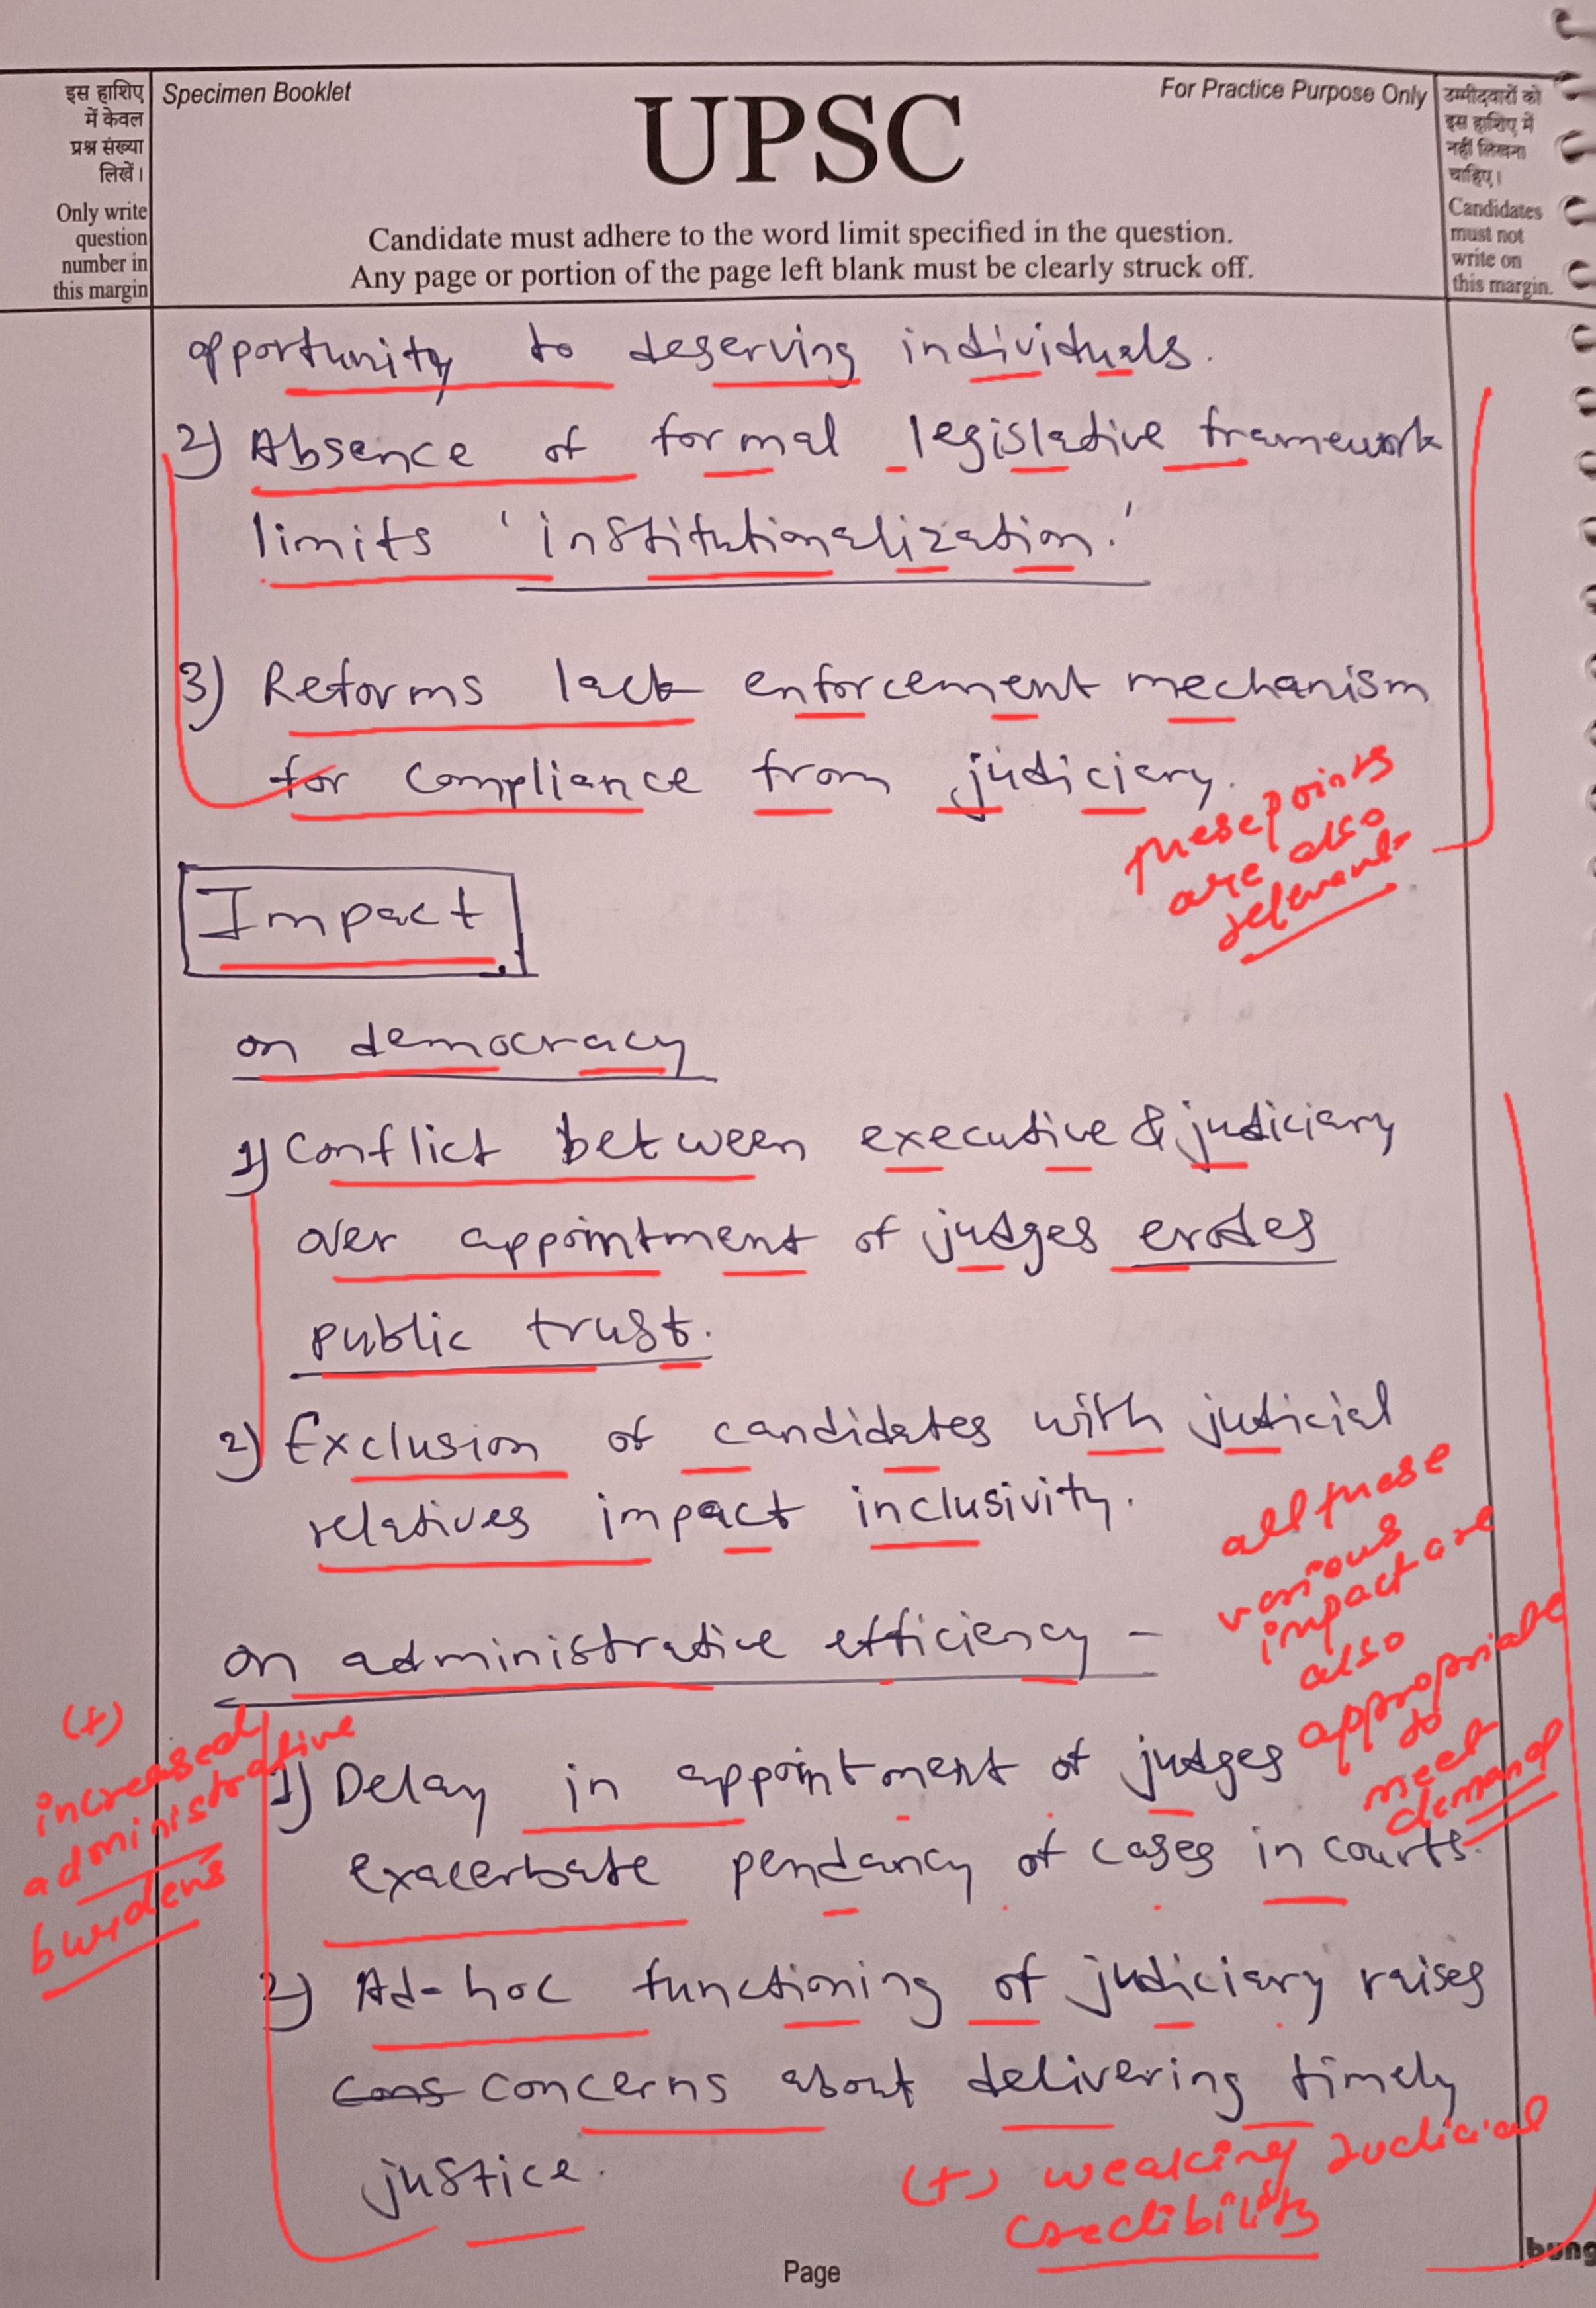 इस हाशिए
में केवल
प्रश्न संख्या
लिखें।
Only write
question
number in
this margin
Specimen Booklet
UPSC
For Practice Purpose Only
Candidate must adhere to the word limit specified in the question.
Any page or portion of the page left blank must be clearly struck off.
उम्मीदवारों को
इस हाशिए में
नहीं लिखना
चाहिए।
Candidates
must not
write on
this margin.
opportunity to deserving individuals.
2) Absence of formal legislative framework
limits 'institutionalization.'
3) Reforms lack enforcement mechanism
for compliance from judiciary.
these points
are also
relevant
Impact
on democracy
1) Conflict between executive & judiciary
over appointment of judges erodes
public trust.
2) Exclusion of candidates with judicial
relatives impact inclusivity.
all these
various
impact are
also
appropriate
to
meet
demand
on administrative efficiency -
(+)
increased
administrative
burdens
1) Delay in appointment of judges
exacerbate pendancy of cases in courts.
2) Ad-hoc functioning of judiciary raises
concerns about delivering timely
justice.
(+) weaking Judicial
credibility
Page
bung